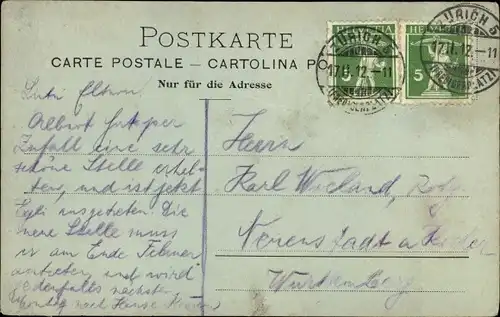 POSTKARTE
CARTE POSTALE — CARTOLINA PO
Nur für die Adresse
ZÜRICH 5
17.II.12.-11
HELVETIA
5
ZÜRICH 5
17.II.12.-11
5
Eltern
Albert hat per
Zufall eine sehr
schöne Stelle erhal-
ten, und ist jetzt
ausgetreten. Die
neue Stelle muss
er am Ende Februar
antreten, und wird
jedenfalls nächsten
Montag nach Hause
Herrn
Karl Wieland,
Neuenstadt a Kocher
Württemberg